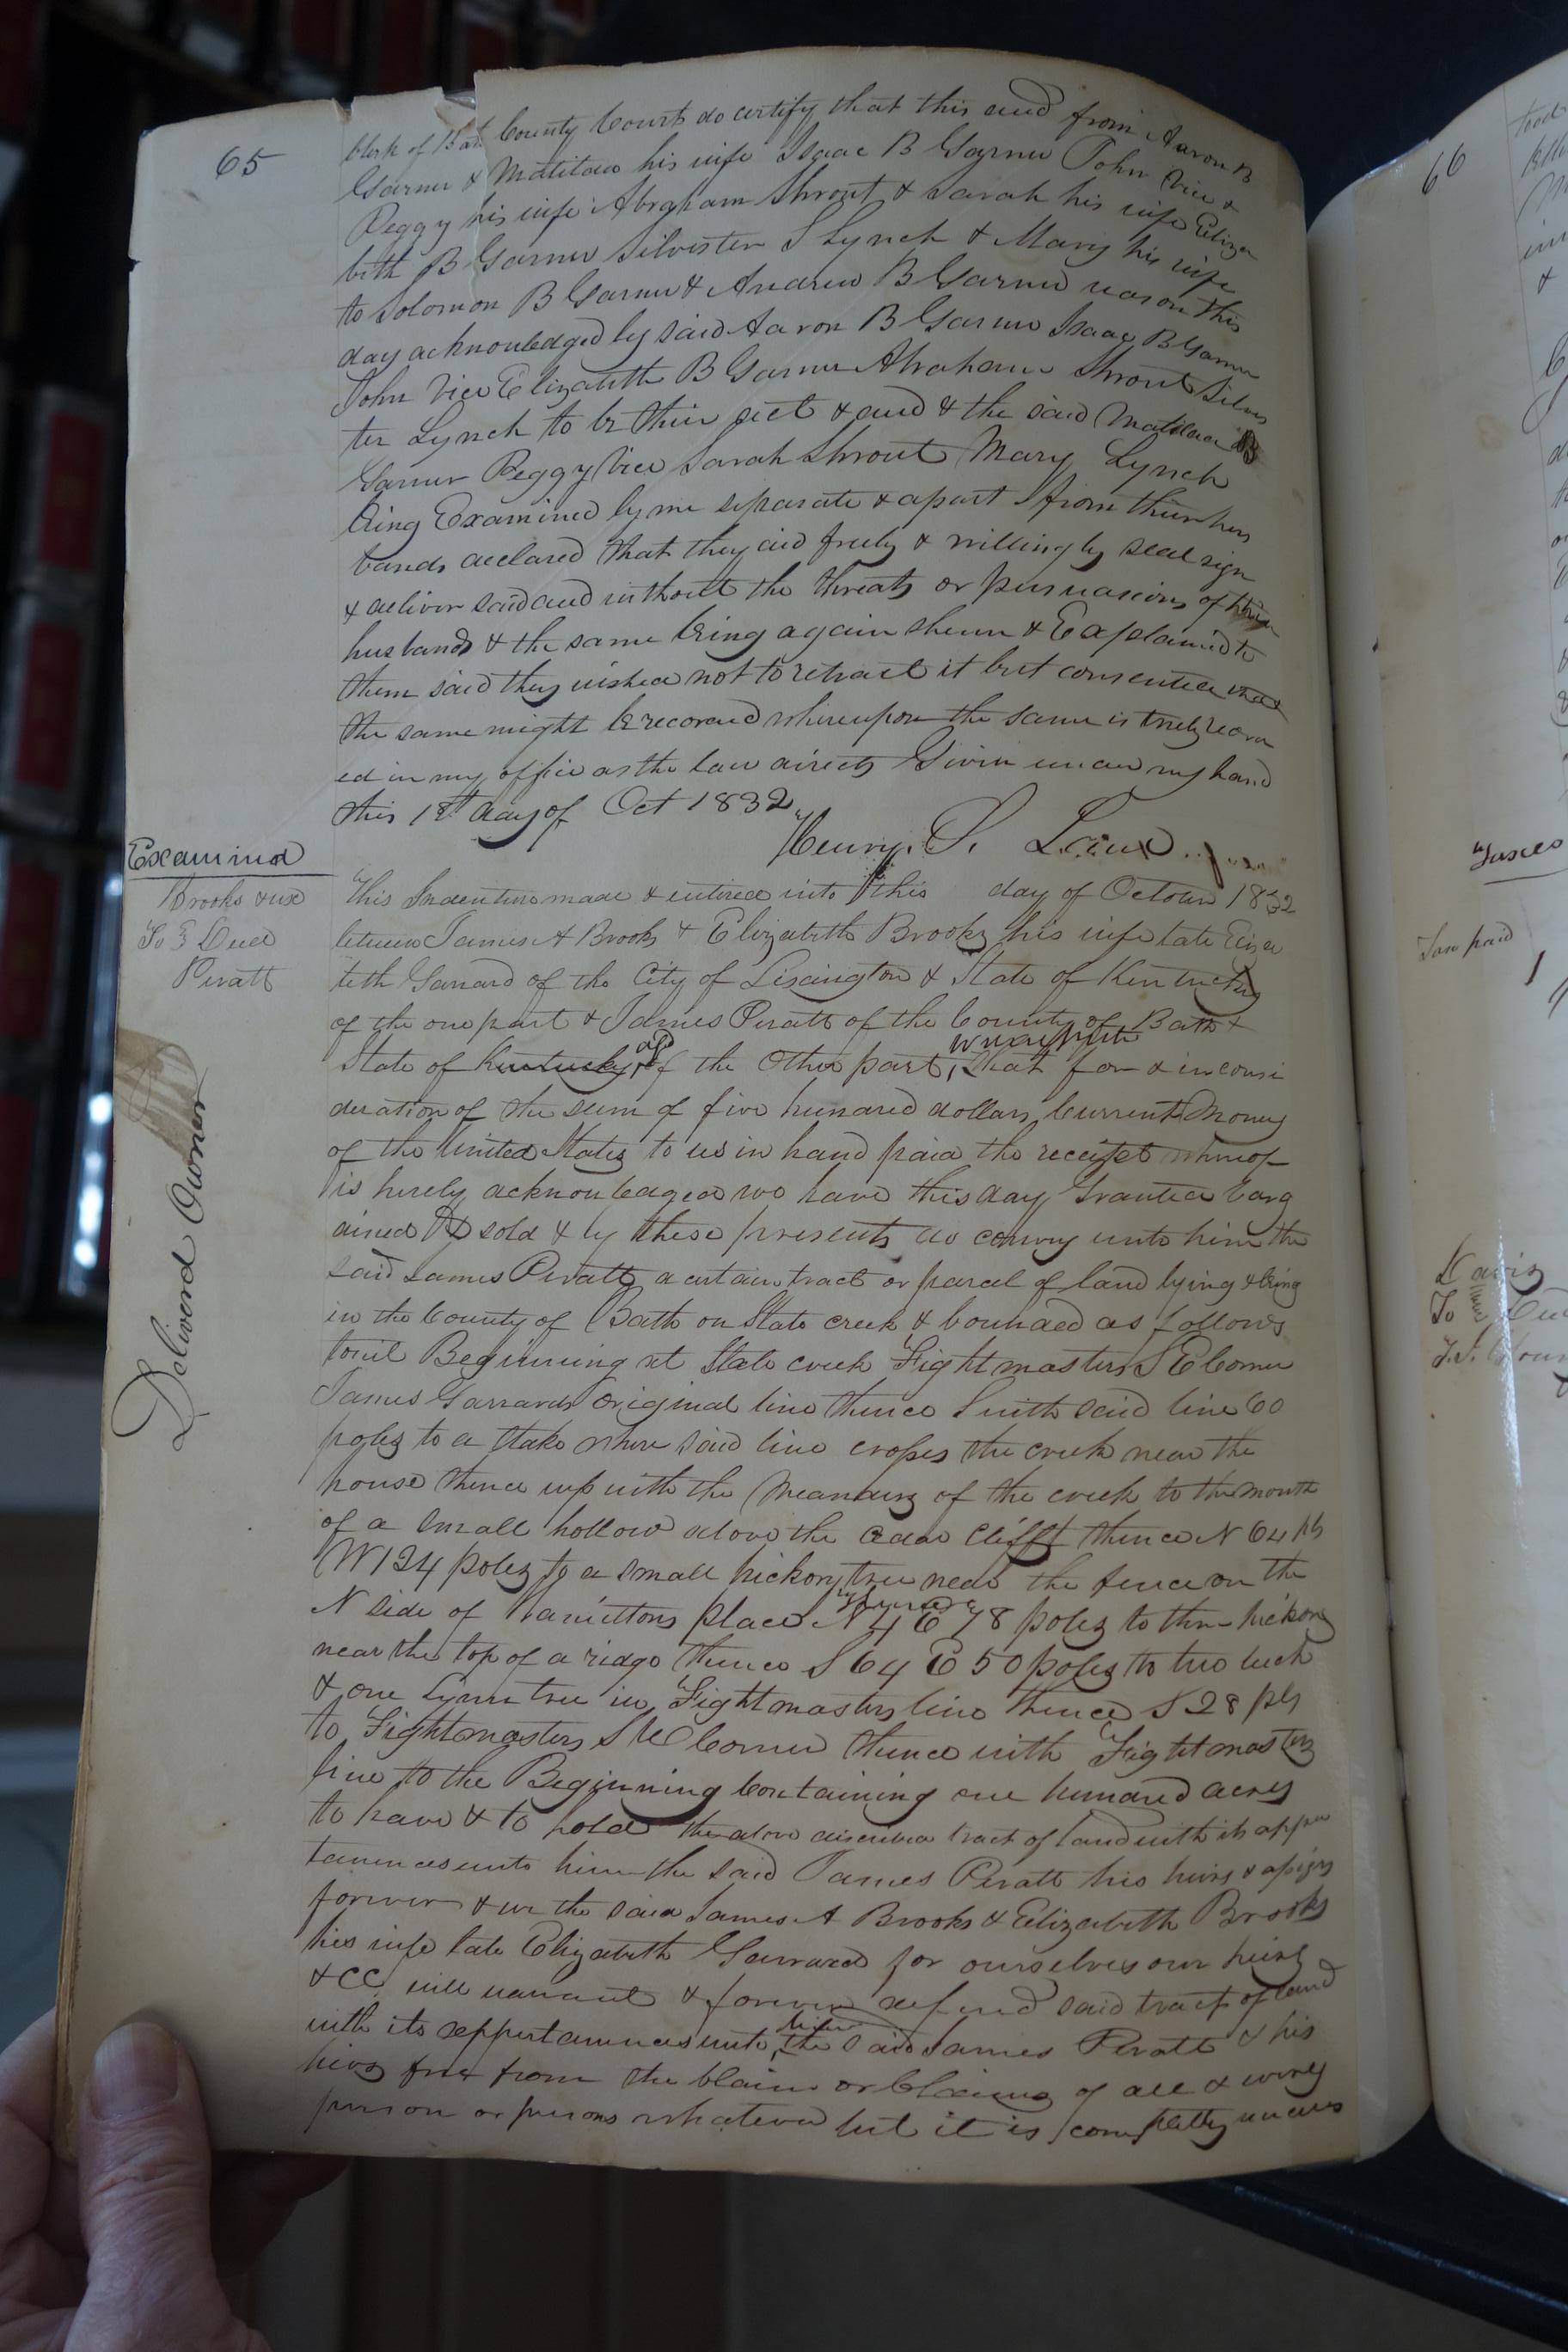 65
Clerk of Bath County Court do certify that this deed from Aaron B
Garner & Matilda his wife Isaac B Garner John Vice &
Peggy his wife Abraham Shrout & Sarah his wife Eliza
beth B Garner Silvester S Lynch & Mary his wife
to Solomon B Garner & Andrew B Garner was on this
day acknowledged by said Aaron B Garner Isaac B Garner
John Vice Elizabeth B Garner Abraham Shrout Silves
ter Lynch to be their act & deed & the said Matilda B
Garner Peggy Vice Sarah Shrout Mary Lynch
being Examined by me separate & apart from their hus
bands declared that they did freely & willingly seal sign
& deliver said deed without the threats or persuasions of their
husbands & the same being again shewn & Explained to
them said they wished not to retract it but consented that
the same might be recorded whereupon the same is truly record
ed in my office as the law directs Given under my hand
this 18th day of Oct 1832
Henry S. Lane
Examined
Brooks & ux
To } Deed
Peratt
Delivered Owner
This Indenture made & entered into this day of October 1832
between James A Brooks & Elizabeth Brooks his wife late Eliza
beth Garrard of the City of Lexington & State of Kentucky
of the one part & James Peratt of the County of Bath &
State of Kentucky of the other part, Witnesseth that for & in consi
deration of the sum of five hundred dollars Current Money
of the United States to us in hand paid the receipt whereof
is hereby acknowledged we have this day Granted barg
ained & sold & by these presents do convey unto him the
said James Peratt a certain tract or parcel of land lying & being
in the County of Bath on State creek & bounded as follows
towit Beginning at State creek Fightmasters S E Corner
James Garrards Original line thence S with said line 60
poles to a stake where said line crosses the creek near the
house thence up with the Meanders of the creek to the mouth
of a small hollow above the cedar Clifft thence N 64 pls
W 124 poles to a small hickory tree near the fence on the
N side of Hamiltons place N 4 E 78 poles to three hickory
near the top of a ridge thence S 64 E 50 poles to two buck
& one Lynn tree in Fightmasters line thence S 28 pls
to Fightmasters S W Corner thence with Fightmasters
line to the Beginning Containing one hundred acres
to have & to hold the above discribed tract of land with its appur
tanences unto him the said James Peratt his heirs & assigns
forever & we the said James A Brooks & Elizabeth Brooks
his wife late Elizabeth Garrard for ourselves our heirs
&CC will warrant & forever defend said tract of land
with its appertanences unto him the said James Peratt & his
heirs free from the Claim or Claims of all & every
person or persons whatever but it is completly unders
66
Tax paid
Davis
To